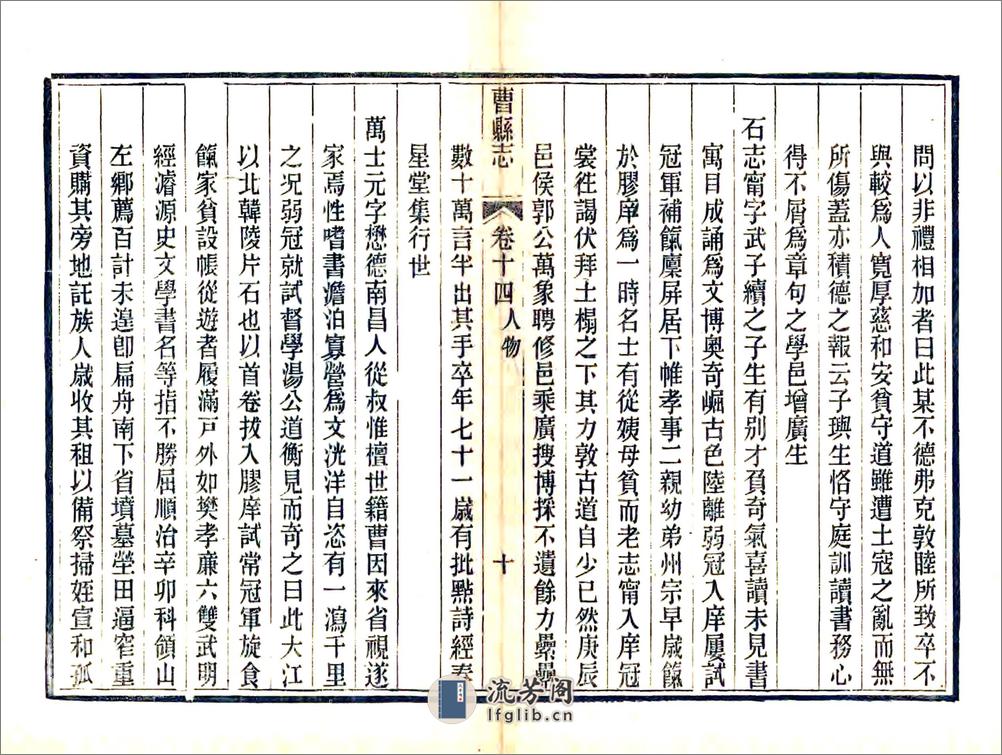 問以非禮相加者曰此某不德弗克敦睦所致卒不
與較爲人寬厚慈和安貧守道雖遭土寇之亂而無
所傷蓋亦積德之報云子輿生恪守庭訓讀書務心
得不屑爲章句之學邑增廣生
石志甯字武子續之子生有别才負奇氣喜讀未見書
寓目成誦爲文博奧奇崛古色陸離弱冠入庠屢試
冠軍補餼廩屏居下帷孝事二親幼弟州宗早歲餼
於膠庠爲一時名士有從姨母貧而老志甯入庠冠
裳徃謁伏拜土榻之下其力敦古道自少已然庚辰
邑侯郭公萬象聘修邑乘廣搜博採不遺餘力纍纍
曹縣志 卷十四 人物 十
數十萬言半出其手卒年七十一歲有批點詩經奏
星堂集行世
萬士元字懋德南昌人從叔惟檀世籍曹因來省視遂
家焉性嗜書澹泊寡營爲文洸洋自恣有一瀉千里
之况弱冠就試督學湯公道衡見而奇之曰此大江
以北韓陵片石也以首卷拔入膠庠試常冠軍旋食
餼家貧設帳從遊者履滿戸外如樊孝廉六雙武明
經濬源史文學書名等指不勝屈順治辛卯科領山
左鄉薦百計未遑卽扁舟南下省墳墓塋田逼窄重
資購其旁地託族人歲收其租以備祭掃姪宣和孤
流芳阁
lfglib.cn